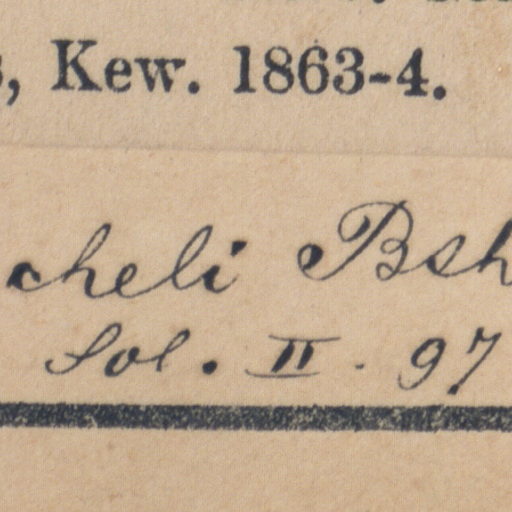 , Kew. 1863-4.
cheli Bsh
Sol. II. 97